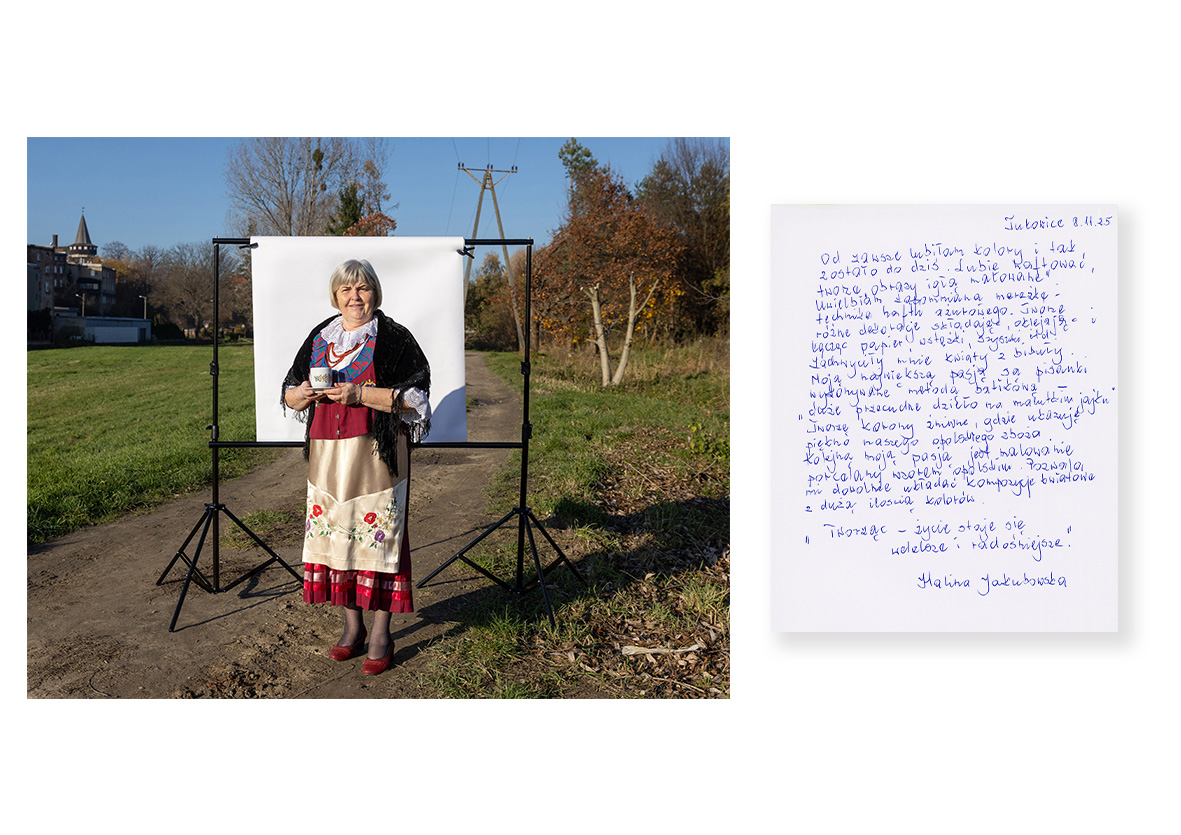 Tułowice 8.11.25
Od zawsze lubiłam kolory i tak
zostało do dziś. Lubię haftować,
tworzę obrazy igłą malowane"
Uwielbiam zapomnianą mereżkę -
technikę haftu ażurowego. Tworzę
różne dekoracje składając, oklejając i
łącząc papier, wstążki, szyszki, itd.
Zachwyciły mnie kwiaty z bibuły.
Moją największą pasją są pisanki
wykonywane metodą batikową -
"duże przecudne dzieło na malutkim jajku"
Tworzę korony żniwne, gdzie ukazuję
piękno naszego opolskiego zboża.
Kolejną moją pasją jest malowanie
porcelany wzorem opolskim. Pozwala
mi dowolnie układać kompozycje kwiatowe
z dużą ilością kolorów.
" Tworząc - życie staje się
i radośniejsze."
Halina Jakubowska